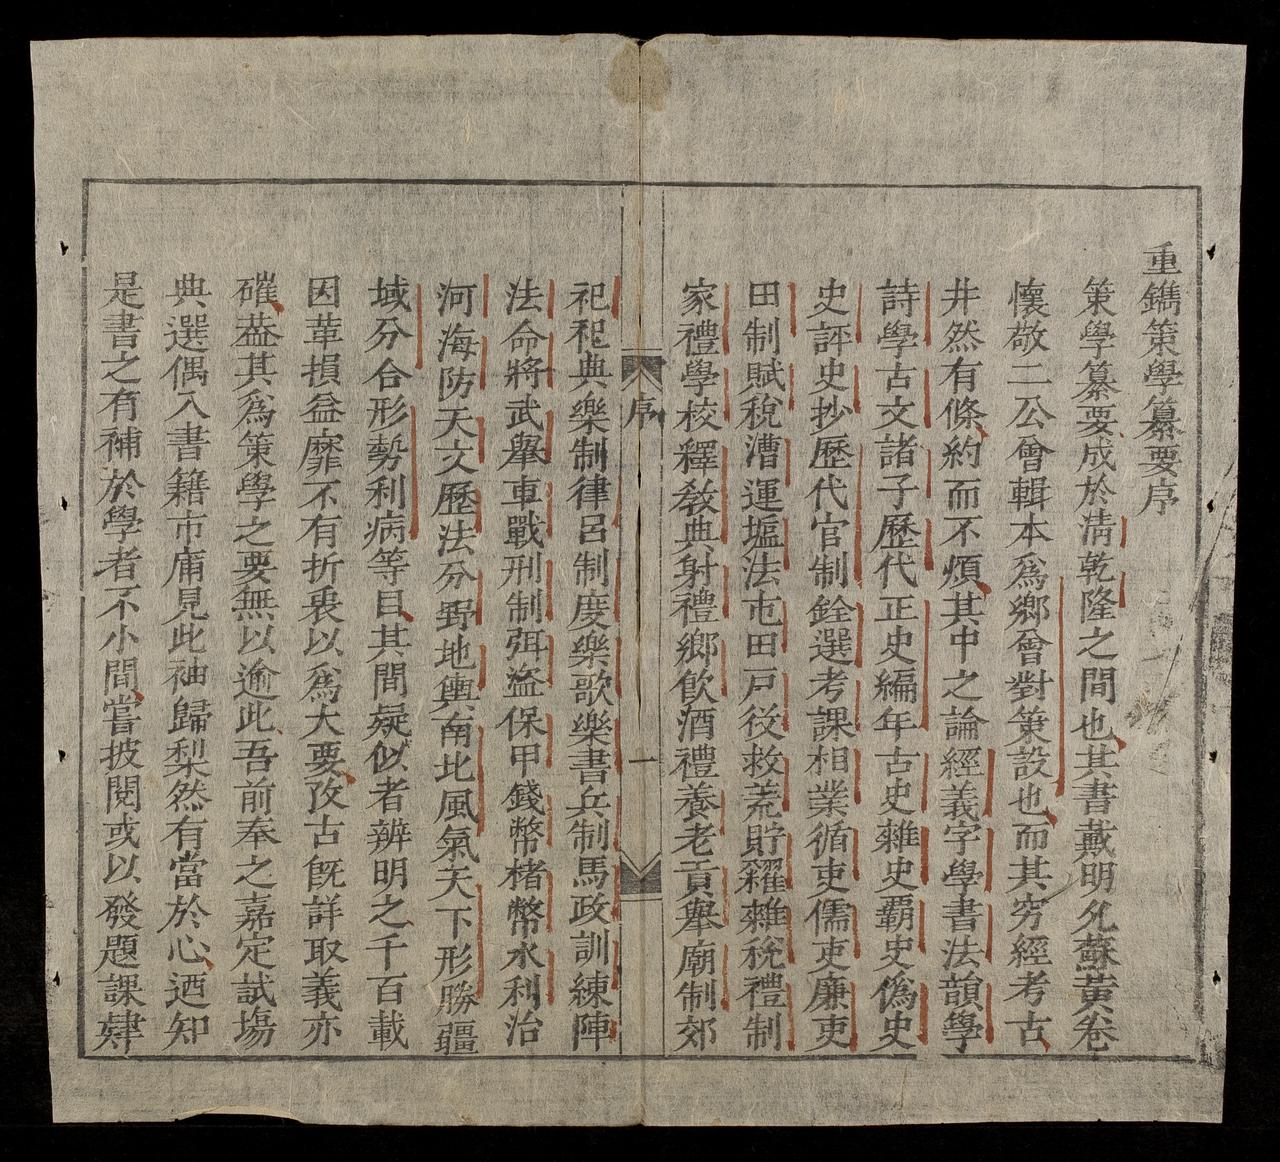 重鐫策學纂要序
策學纂要成於清乾隆之間也其書戴明允蘇黃卷
懷敬二公會輯本爲鄉會對策設也而其穷經考古
井然有條約而不煩其中之論經義字學書法韻學
詩學古文諸子歷代正史編年古史雜史覇史僞史
史評史抄歷代官制銓選考課相業循吏儒吏廉吏
田制賦稅漕運塩法屯田戸役救荒貯糴雜稅禮制
家禮學校釋教典射禮鄉飲酒禮養老貢舉廟制郊
序
一
祀祀典樂制律呂制度樂歌樂書兵制馬政訓練陣
法命將武舉車戰刑制弭盗保甲錢幣楮幣水利治
河海防天文歷法分野地輿南北風氣天下形勝疆
域分合形勢利病等目其間疑似者辨明之千百載
因革損益靡不有折衷以爲大要攷古旣詳取義亦
確葢其爲策學之要無以逾此吾前奉之嘉定試塲
典選偶入書籍市庯見此袖歸梨然有當於心迺知
是書之有補於學者不小間嘗披閱或以發題課肄